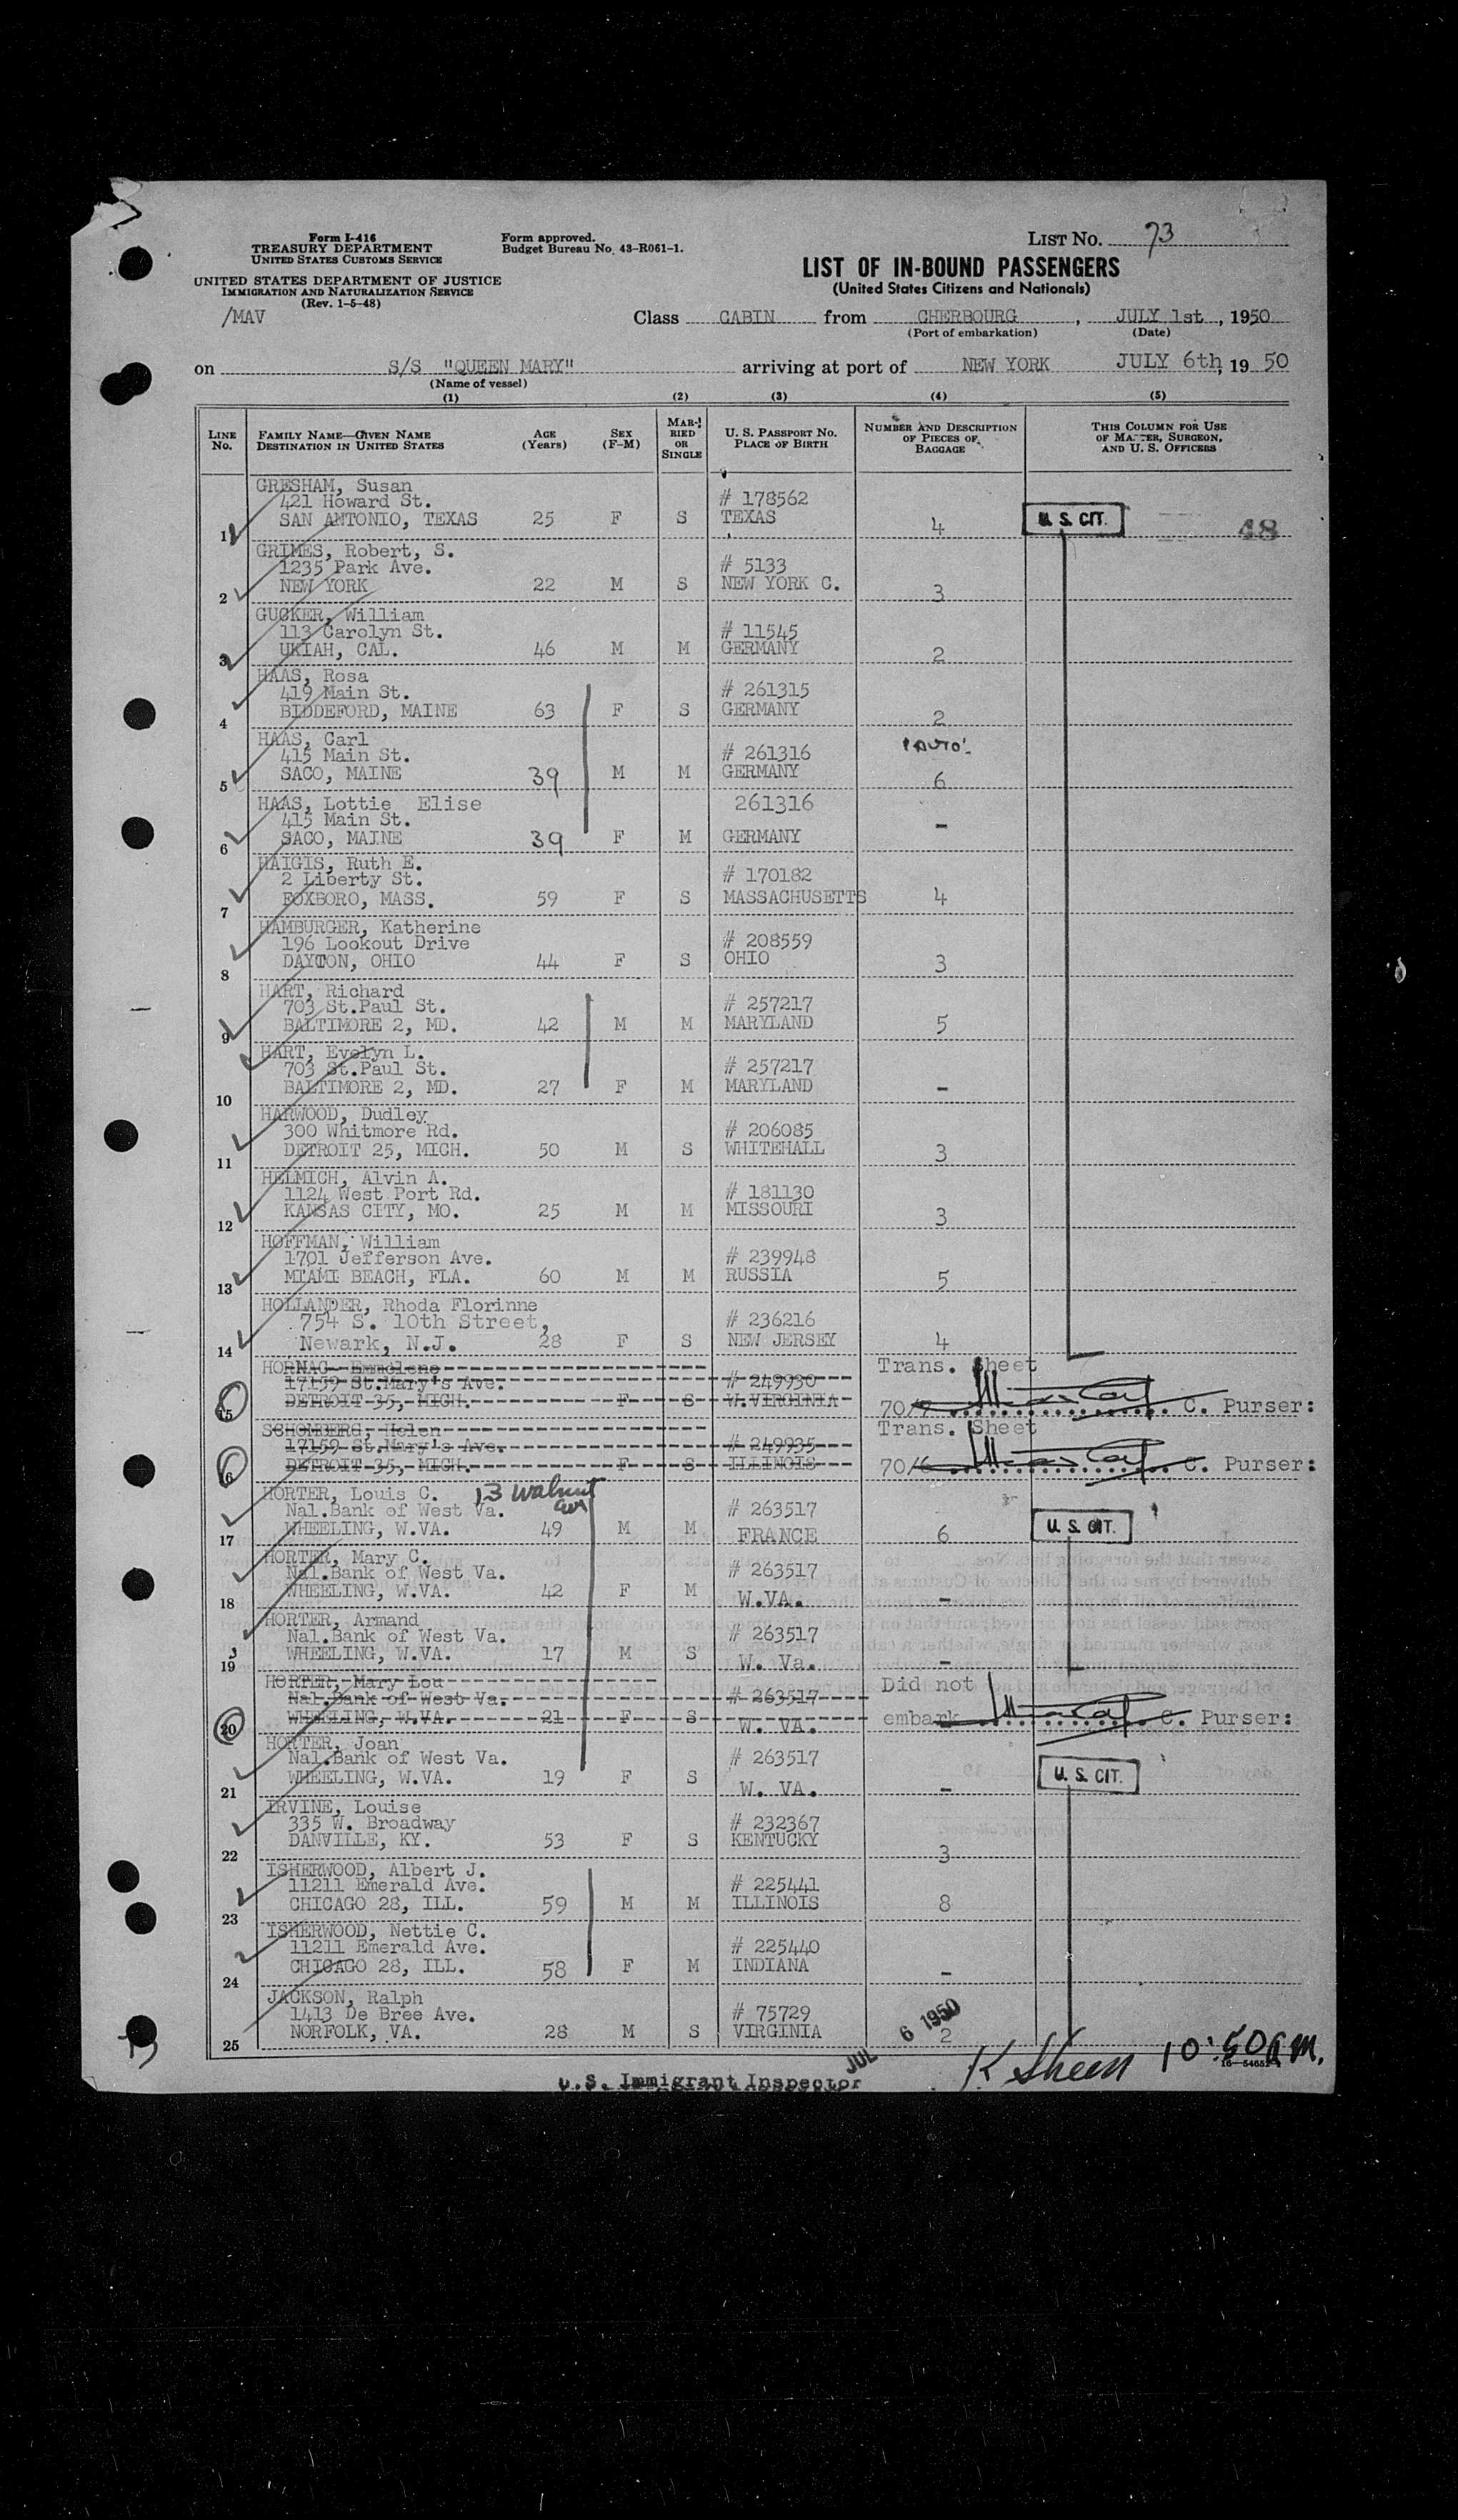 Form I-416
TREASURY DEPARTMENT
UNITED STATES CUSTOMS SERVICE
UNITED STATES DEPARTMENT OF JUSTICE
IMMIGRATION AND NATURALIZATION SERVICE
(Rev. 1-5-48)
/MAV
Form approved.
Budget Bureau No. 43-R061-1.
LIST NO. 73
LIST OF IN-BOUND PASSENGERS
(United States Citizens and Nationals)
Class CABIN from CHERBOURG, JULY 1st, 1950
(Port of embarkation) (Date)
on S/S "QUEEN MARY" arriving at port of NEW YORK JULY 6th, 19 50
(Name of vessel)
(1) (2) (3) (4) (5)
LINE NO. FAMILY NAME—GIVEN NAME DESTINATION IN UNITED STATES AGE (Years) SEX (F-M) MARRIED OR SINGLE U. S. PASSPORT NO. PLACE OF BIRTH NUMBER AND DESCRIPTION OF PIECES OF BAGGAGE THIS COLUMN FOR USE OF MASTER, SURGEON, AND U. S. OFFICERS
GRESHAM, Susan
421 Howard St. # 178562
1 SAN ANTONIO, TEXAS 25 F S TEXAS 4 U. S. CIT. 48
GRIMES, Robert, S.
1235 Park Ave. # 5133
2 NEW YORK 22 M S NEW YORK C. 3
GUCKER, William
113 Carolyn St. # 11545
3 UKIAH, CAL. 46 M M GERMANY 2
HAAS, Rosa
419 Main St. # 261315
4 BIDDEFORD, MAINE 63 F S GERMANY 2
HAAS, Carl
415 Main St. # 261316 1 AUTO
5 SACO, MAINE 39 M M GERMANY 6
HAAS, Lottie Elise 261316
415 Main St.
6 SACO, MAINE 39 F M GERMANY -
HAIGIS, Ruth E.
2 Liberty St. # 170182
7 FOXBORO, MASS. 59 F S MASSACHUSETTS 4
HAMBURGER, Katherine
196 Lookout Drive # 208559
8 DAYTON, OHIO 44 F S OHIO 3
HART, Richard
703 St.Paul St. # 257217
9 BALTIMORE 2, MD. 42 M M MARYLAND 5
HART, Evelyn L.
703 St.Paul St. # 257217
10 BALTIMORE 2, MD. 27 F M MARYLAND -
HARWOOD, Dudley
300 Whitmore Rd. # 206085
11 DETROIT 25, MICH. 50 M S WHITEHALL 3
HELMICH, Alvin A.
1124 West Port Rd. # 181130
12 KANSAS CITY, MO. 25 M M MISSOURI 3
HOFFMAN, William
1701 Jefferson Ave. # 239948
13 MIAMI BEACH, FLA. 60 M M RUSSIA 5
HOLLANDER, Rhoda Florinne
754 S. 10th Street, # 236216
14 Newark, N.J. 28 F S NEW JERSEY 4
HORNAC Emmelene Trans. Sheet
17159 St.Mary's Ave. # 249930
15 DETROIT 35, MICH. F S W.VIRGINIA 70/7 C. Purser:
SCHOMBERG, Helen Trans. Sheet
17159 St.Mary's Ave. # 249935
16 DETROIT 35, MICH. F S ILLINOIS 70/6 C. Purser:
HORTER, Louis C. 13 Walnut Ave
Nal.Bank of West Va. # 263517
17 WHEELING, W.VA. 49 M M FRANCE 6 U. S. CIT.
HORTER, Mary C.
Nal.Bank of West Va. # 263517
18 WHEELING, W.VA. 42 F M W.VA. -
HORTER, Armand
Nal.Bank of West Va. # 263517
19 WHEELING, W.VA. 17 M S W. Va. -
HORTER, Mary Lou Did not
Nal.Bank of West Va. # 263517
20 WHEELING, W.VA. 21 F S W. VA. embark C. Purser:
HORTER, Joan
Nal.Bank of West Va. # 263517
21 WHEELING, W.VA. 19 F S W. VA. - U. S. CIT.
IRVINE, Louise
335 W. Broadway # 232367
22 DANVILLE, KY. 53 F S KENTUCKY 3
ISHERWOOD, Albert J.
11211 Emerald Ave. # 225441
23 CHICAGO 28, ILL. 59 M M ILLINOIS 8
ISHERWOOD, Nettie C.
11211 Emerald Ave. # 225440
24 CHICAGO 28, ILL. 58 F M INDIANA -
JACKSON, Ralph
1413 De Bree Ave. # 75729
25 NORFOLK, VA. 28 M S VIRGINIA 2
JUL 6 1950
K Sheen 10:50 AM.
U.S. Immigrant Inspector